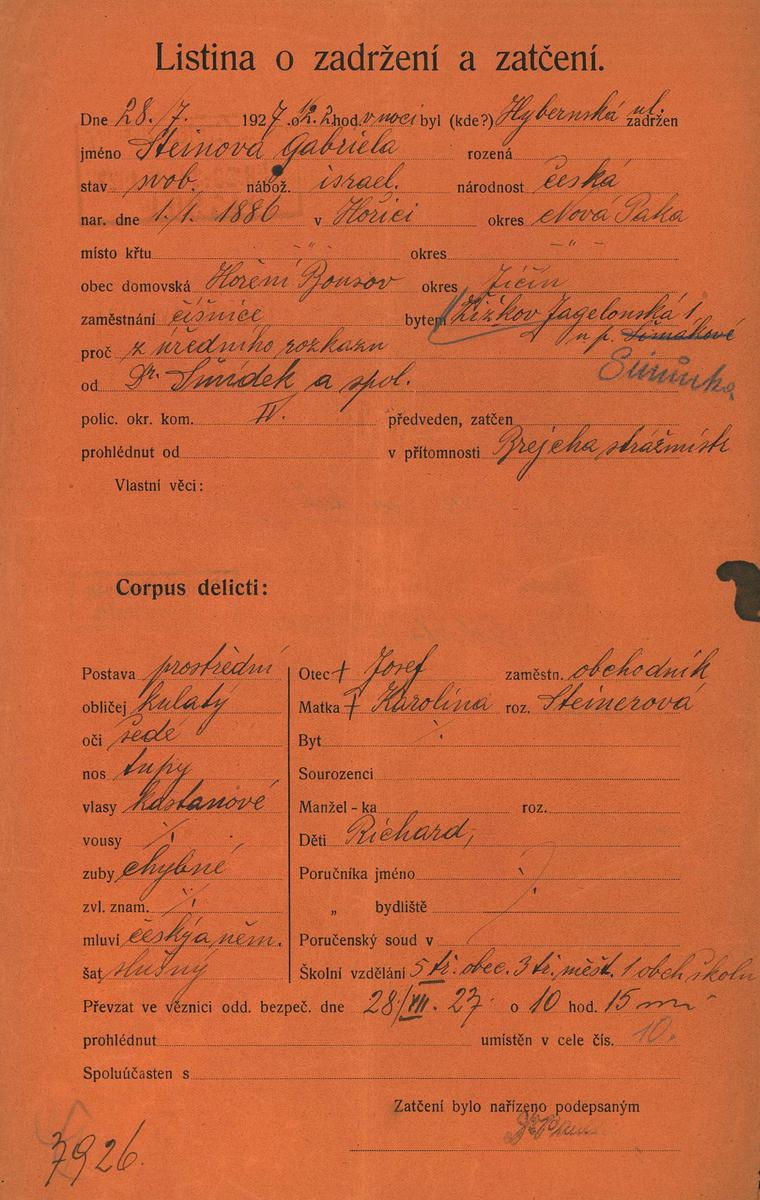 Listina o zadržení a zatčení.
Dne 28./7. 1927. o 12.2 hod. v noci byl (kde?) Hybernská ul. zadržen
jméno Steinova Gabriela rozená
stav svob. nábož. israel. národnost česká
nar. dne 1./1. 1886 v Hořici okres Nová Paka
místo křtu -"- okres -"-
obec domovská Hoření Bousov okres Jičín
zaměstnání číšnice bytem Žižkov Jagelonská 1
u p.
proč z úředního rozkazu
od Dr. Šmídek a spol.
polic. okr. kom. II. předveden, zatčen
prohlédnut od v přítomnosti Brejcha strážmistr
Vlastní věci:
Corpus delicti:
Postava prostřední Otec † Josef zaměstn. obchodník
obličej kulatý Matka † Karolina roz. Steinerová
oči šedé Byt ./.
nos tupý Sourozenci
vlasy kaštanové Manžel - ka roz.
vousy ./. Děti Richard,
zuby chybné Poručníka jméno ./.
zvl. znam. ./. „ bydliště
mluví český a něm. Poručenský soud v
šat slušný Školní vzdělání 5 tř. obec. 3 tř. měšť. 1 obch školu
Převzat ve věznici odd. bezpeč. dne 28./VII. 27. o 10 hod. 15 mi
prohlédnut umístěn v cele čís. 10.
Spoluúčasten s
Zatčení bylo nařízeno podepsaným
7926.